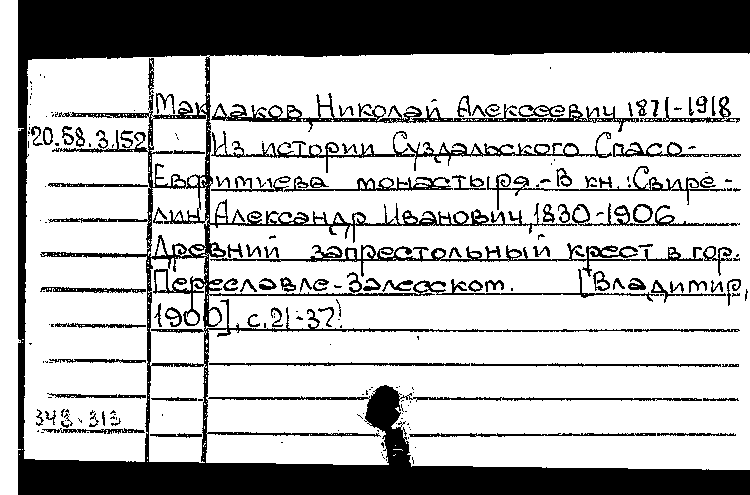 Маклаков, Николай Алексеевич, 1871-1918
20.58.3.152 Из истории Суздальского Спасо-
Евфимиева монастыря.-В кн.:Свире-
лин, Александр Иванович, 1830-1906.
Древний запрестольный крест в гор.
Переславле-Залесском. [Владимир,
1900], с.21-37.
348-313